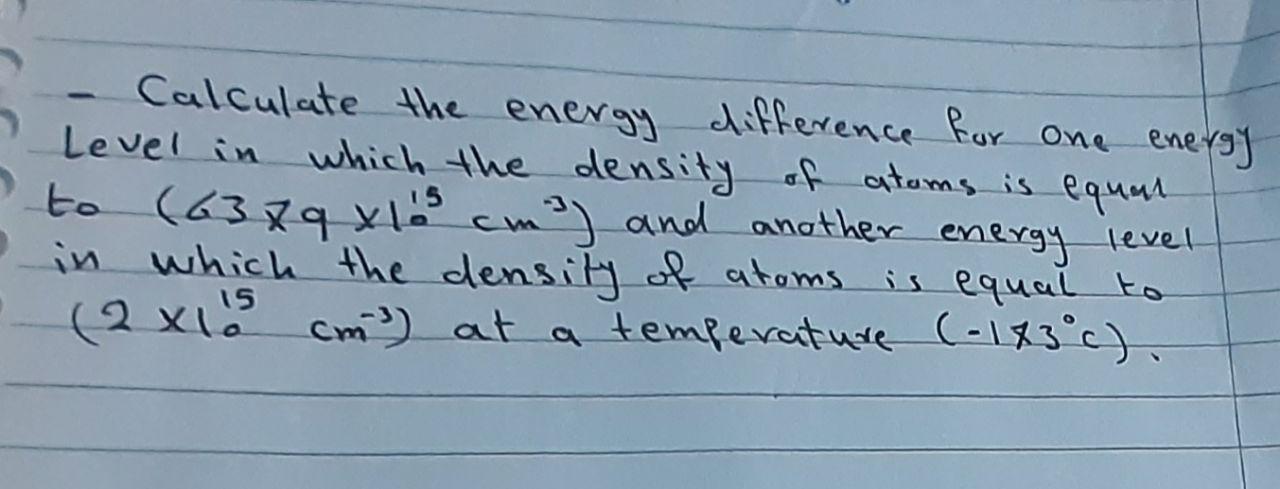 - Calculate the energy difference for one energy
Level in which the density of atoms is equal
to (6379 x10¹⁵ cm⁻³) and another energy level
in which the density of atoms is equal to
(2 x10¹⁵ cm⁻³) at a temperature (-173°c).